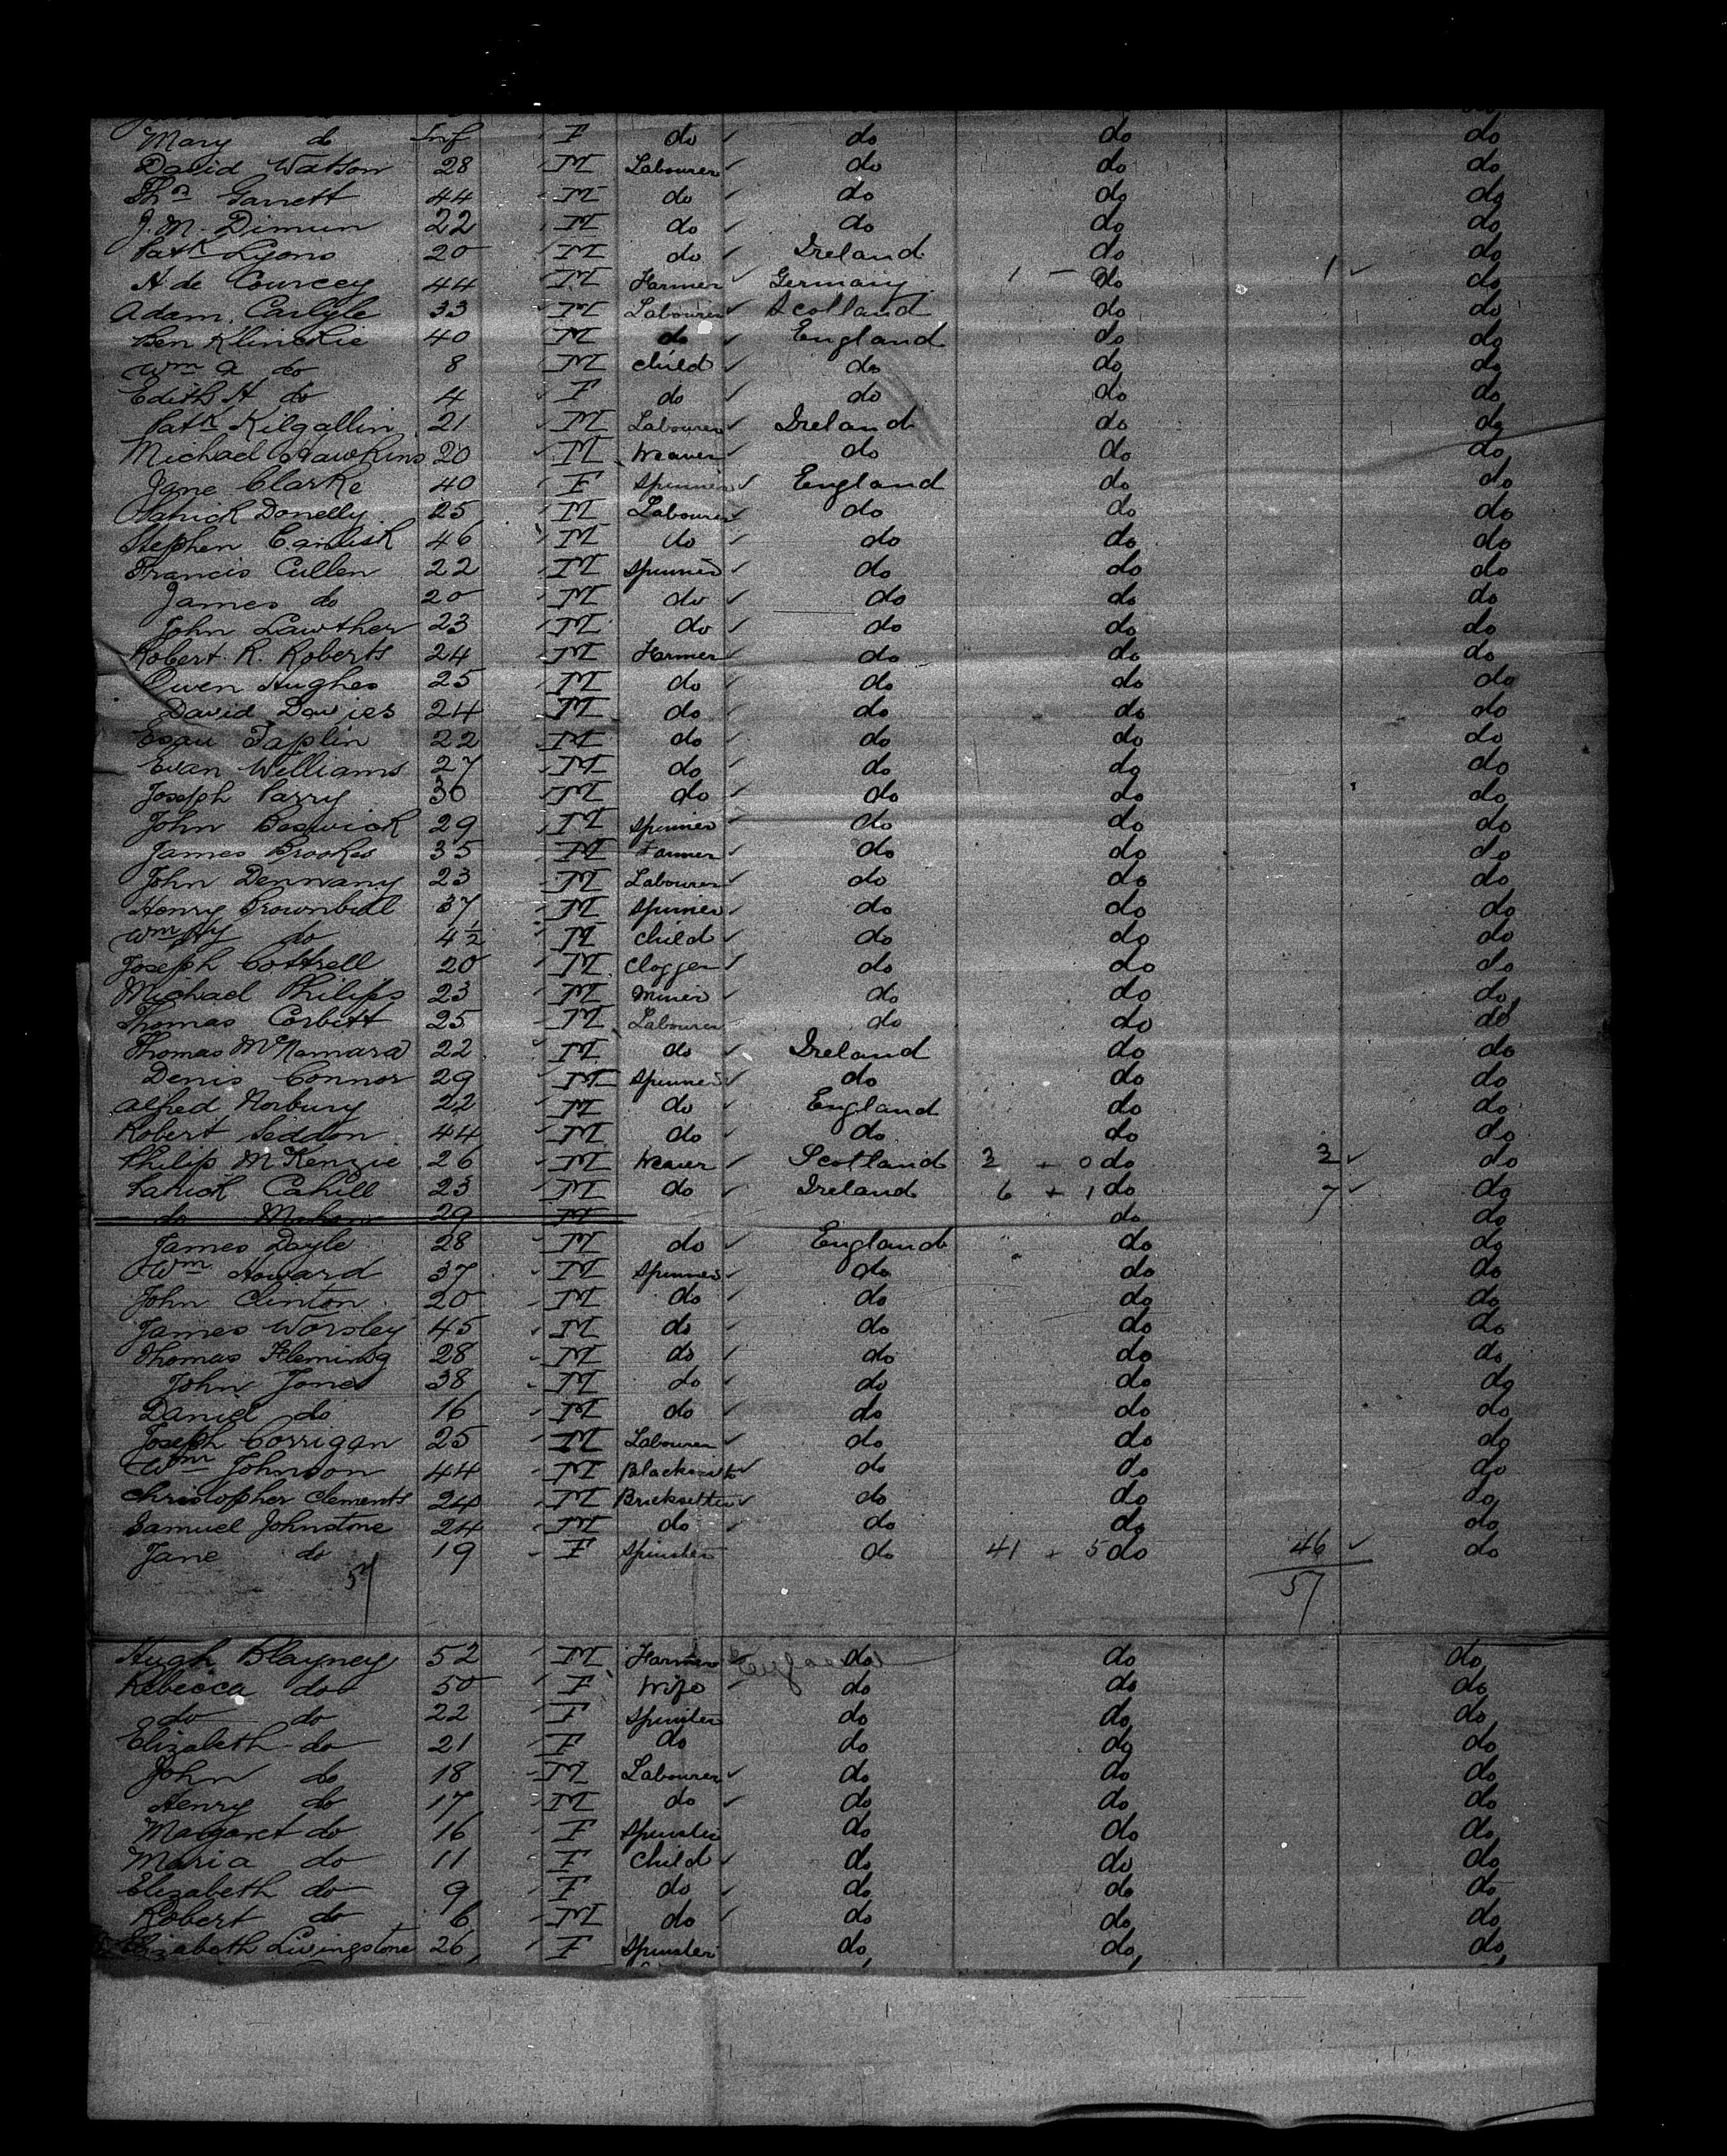 Mary do Inf F do do do do
David Watson 28 M Labourer do do do
Garrett 44 M do do do do
J. M. Dimun 22 M do do do do
Patk Lyons 20 M do Ireland do do
H de Courcey 44 M Farmer Germany 1 - do 1 do
Adam Carlyle 33 M Labourer Scotland do do
Ben Klinckie 40 M do England do do
Wm A do 8 M child do do do
Edith H do 4 F do do do do
Patk Kilgallin 21 M Labourer Ireland do do
Michael Hawkins 20 M Weaver do do do
Jane Clarke 40 F Spinner England do do
Patrick Donelly 25 M Labourer do do do
Stephen 46 M do do do do
Francis Cullen 22 M Spinner do do do
James do 20 M do do do do
John Lawther 23 M do do do do
Robert R. Roberts 24 M Farmer do do do
Owen Hughes 25 M do do do do
David Davies 24 M do do do do
Esau Taplin 22 M do do do do
Evan Williams 27 M do do do do
Joseph Parry 30 M do do do do
John Beswick 29 M Spinner do do do
James Brookes 35 M Farmer do do do
John Dennany 23 M Labourer do do do
Henry Brownbill 37 M Spinner do do do
Wm Hy do 4½ M child do do do
Joseph Cottrell 20 M Clogger do do do
Michael Philips 23 M Miner do do do
Thomas Corbitt 25 M Labourer do do do
Thomas McNamara 22 M do Ireland do do
Denis Connor 29 M Spinner do do do
Alfred Norbury 22 M do England do do
Robert Seddon 44 M do do do do
Philip McKenzie 26 M Weaver Scotland 3 + 0 do 3 do
Patrick Cahill 23 M do Ireland 6 + 1 do 7 do
do Mahon 29 M do do
James Doyle 28 M do England do do
Wm Howard 37 M Spinner do do do
John Clinton 20 M do do do do
James Worsley 45 M do do do do
Thomas Fleming 28 M do do do do
John Jones 38 M do do do do
Daniel do 16 M do do do do
Joseph Corrigan 25 M Labourer do do do
Wm Johnson 44 M Blacksmith do do do
Christopher Clements 24 M Bricksetter do do do
Samuel Johnstone 24 M do do do do
Jane do 19 F Spinster do 41 + 5 do 46 do
57 57
Hugh Blayney 52 M Farmer do do do
Rebecca do 50 F Wife do do do
do do 22 F Spinster do do do
Elizabeth do 21 F do do do do
John do 18 M Labourer do do do
Henry do 17 M do do do do
Margaret do 16 F Spinster do do do
Maria do 11 F Child do do do
Elizabeth do 9 F do do do do
Robert do 6 M do do do do
Elizabeth Livingstone 26 F Spinster do do do